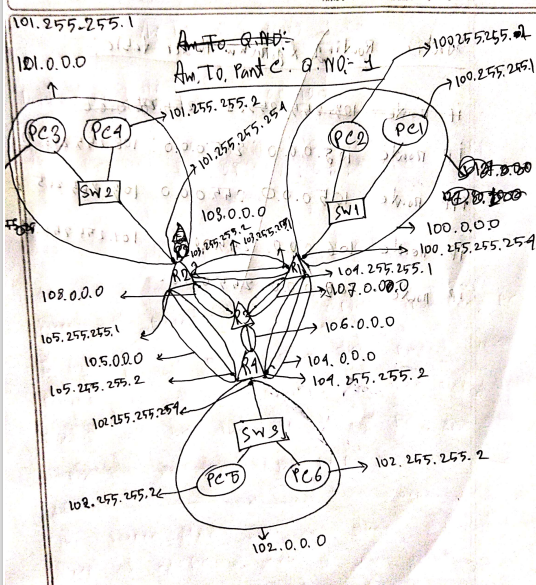 101.255.255.1
Ans. To. Q. NO:-
Ans. To. Part C. Q. NO:- 1
101.0.0.0
100.255.255.2
100.255.255.1
101.255.255.2
101.255.255.254
PC3
PC4
PC2
PC1
SW2
SW1
103.0.0.0
100.0.0.0
103.255.255.2
103.255.255.1
100.255.255.254
R2
R1
104.255.255.1
108.0.0.0
107.0.0.0
R3
105.255.255.1
106.0.0.0
105.0.0.0
R4
104.0.0.0
105.255.255.2
104.255.255.2
102.255.255.254
SW3
PC5
PC6
102.255.255.2
102.255.255.2
102.0.0.0